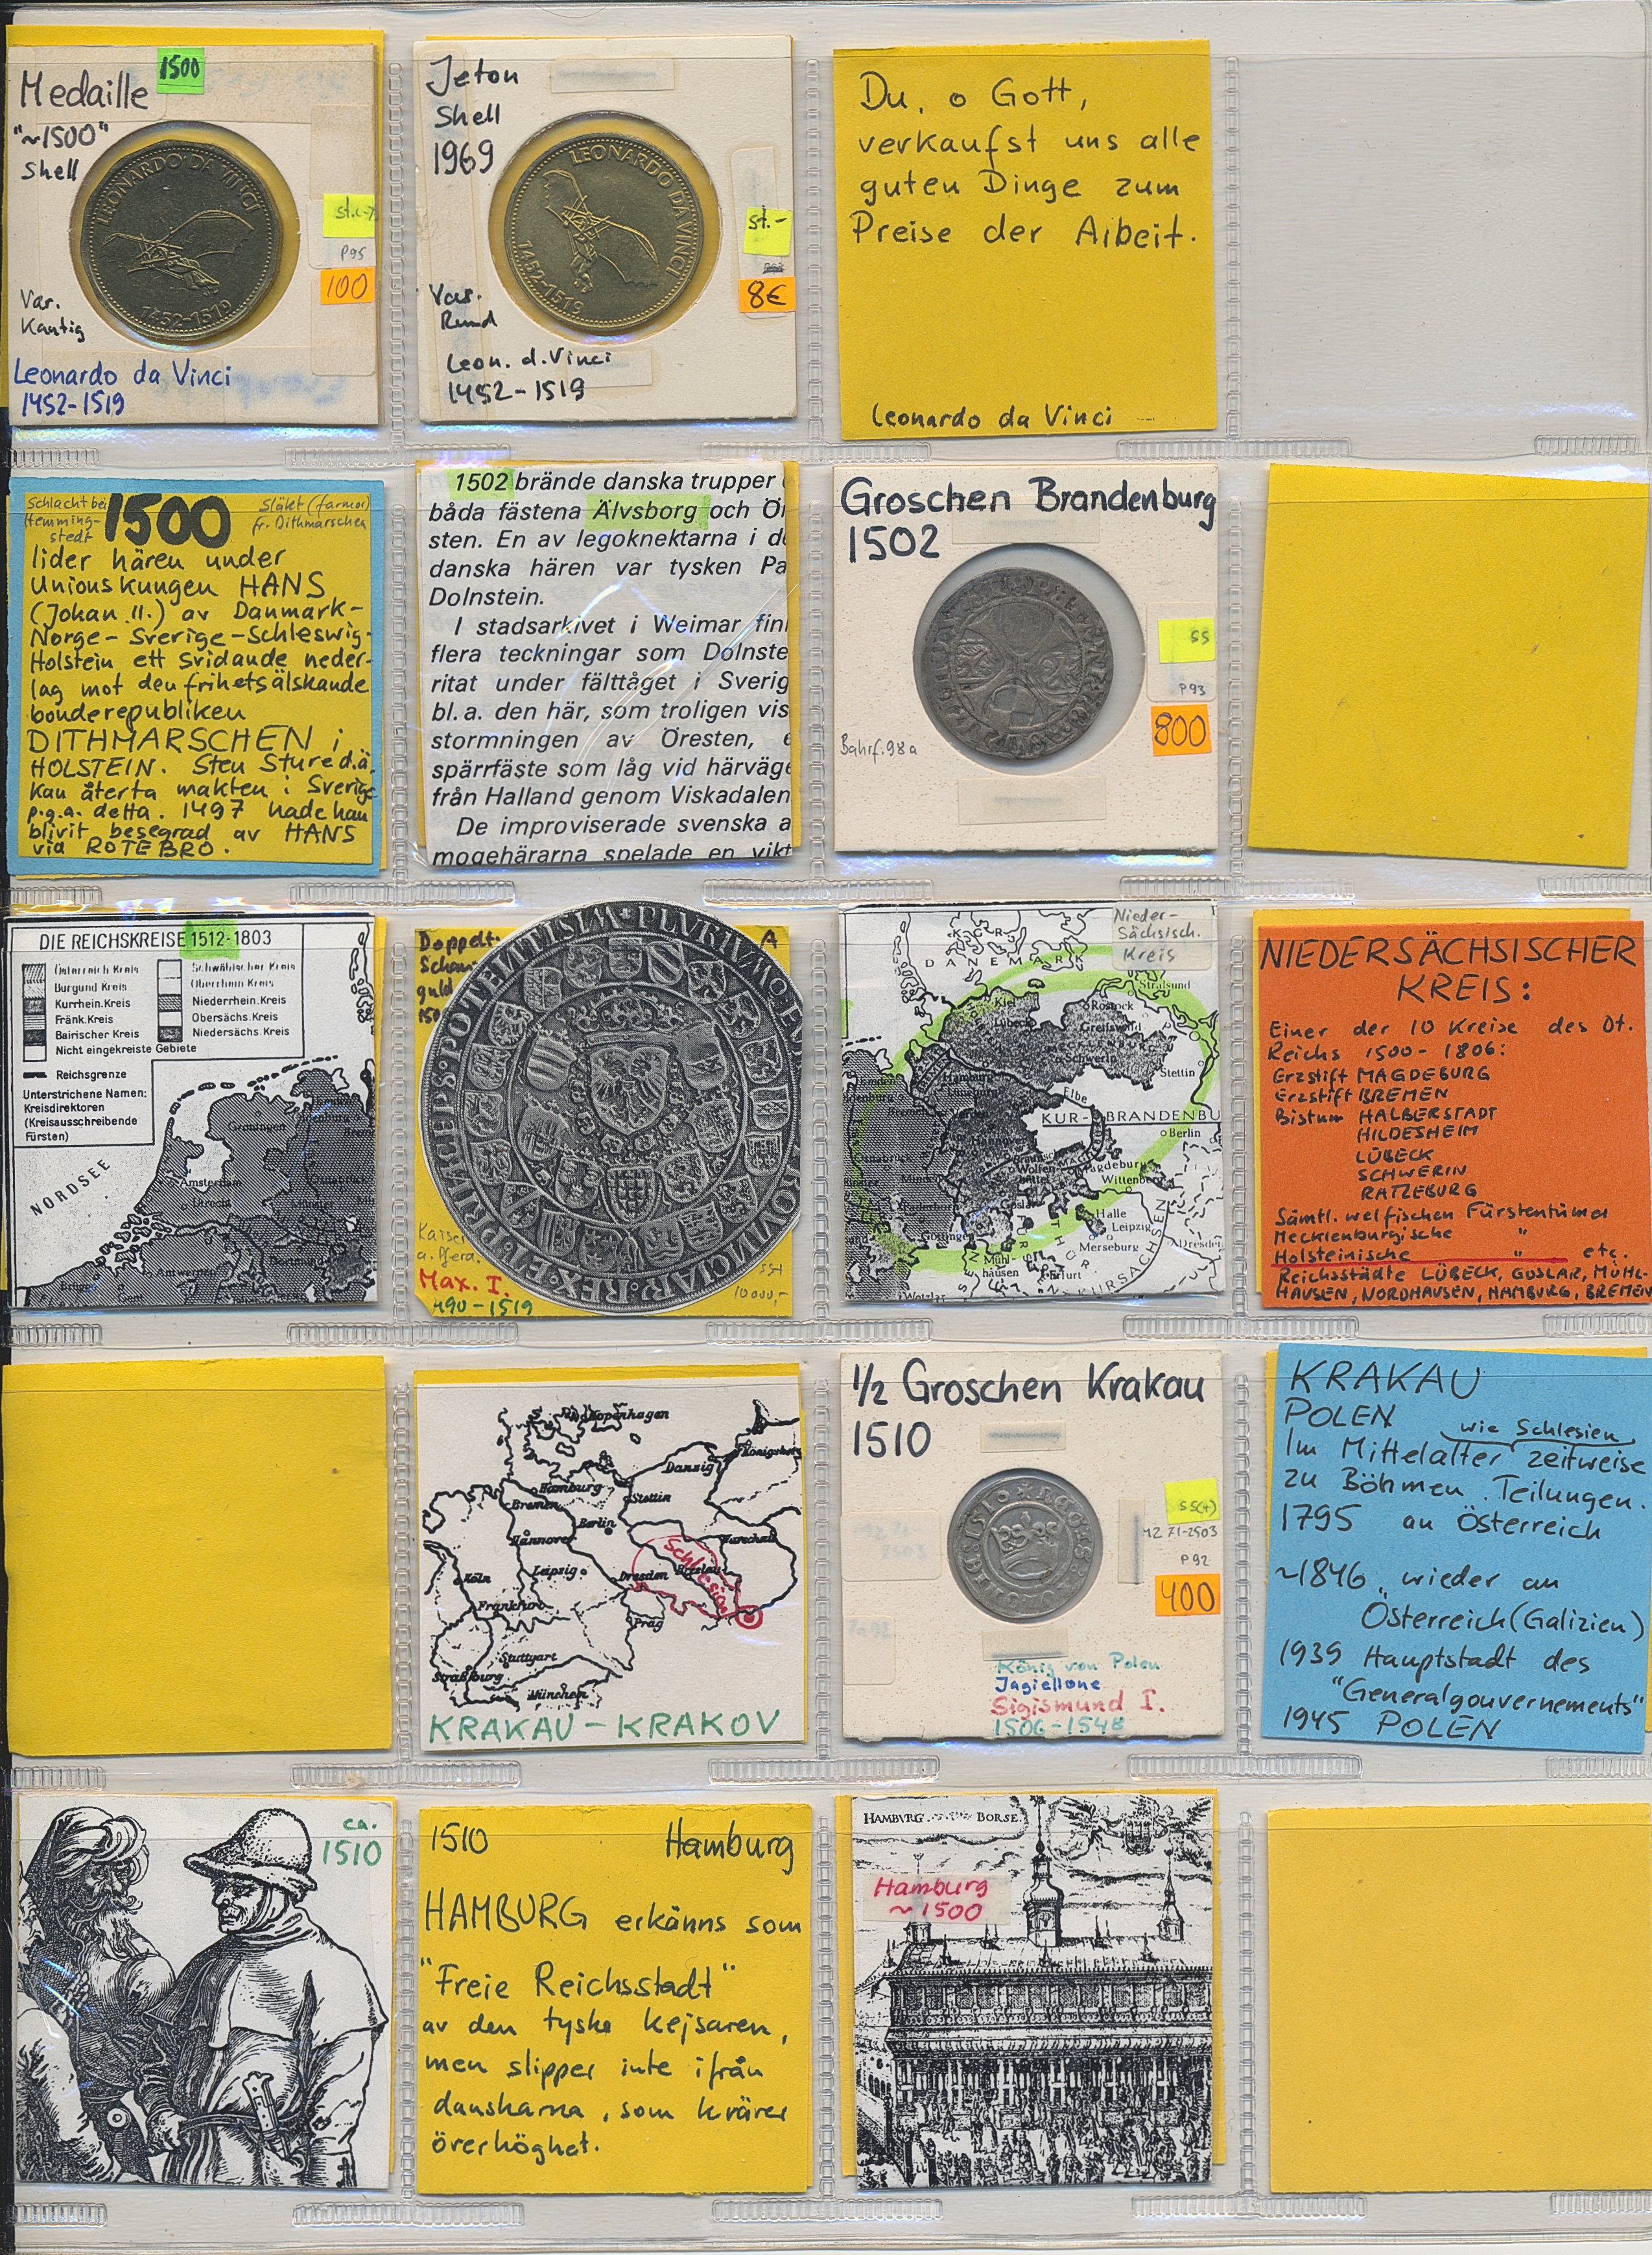 1500
Medaille
"~1500"
Shell
LEONARDO DA VINCI
1452-1519
P95
100
Var.
Kantig
Leonardo da Vinci
1452-1519
Jeton
Shell
1969
LEONARDO DA VINCI
1452-1519
st.-
8€
Var.
Rund
Leon. d. Vinci
1452-1519
Du, o Gott,
verkaufst uns alle
guten Dinge zum
Preise der Arbeit.
Leonardo da Vinci
Schlacht bei
Hemming-
stedt
1500
Släkt (farmor)
fr. Dithmarschen
lider hären under
Unionskungen HANS
(Johan II.) av Danmark-
Norge-Sverige-Schleswig-
Holstein ett svidande neder-
lag mot den frihetsälskande
bonderepubliken
DITHMARSCHEN i
HOLSTEIN. Sten Sture d.ä.
kan återta makten i Sverige
p.g.a. detta. 1497 hade han
blivit besegrad av HANS
vid ROTEBRO.
1502 brände danska trupper
båda fästena Älvsborg och Ör
sten. En av legoknektarna i de
danska hären var tysken Pa
Dolnstein.
I stadsarkivet i Weimar finn
flera teckningar som Dolnste
ritat under fälttåget i Sverig
bl.a. den här, som troligen vis
stormningen av Öresten, e
spärrfäste som låg vid härväge
från Halland genom Viskadalen
De improviserade svenska a
mogehärarna spelade en vikt
Groschen Brandenburg
1502
ss
P93
800
Bahrf. 98a
DIE REICHSKREISE 1512-1803
Österreich Kreis
Burgund Kreis
Kurrhein.Kreis
Fränk.Kreis
Bairischer Kreis
Nicht eingekreiste Gebiete
Schwäbischer Kreis
Oberrhein Kreis
Niederrhein.Kreis
Obersächs. Kreis
Niedersächs. Kreis
Reichsgrenze
Unterstrichene Namen:
Kreisdirektoren
(Kreisausschreibende
Fürsten)
NORDSEE
Groningen
Amsterdam
Utrecht
Münster
Antwerpen
Gent
Doppelt.
A
Kaiser
a. Pferd.
Max. I.
1490-1519
10 000,-
Nieder-
Sächsisch.
Kreis
DÄNEMARK
Stralsund
Kiel
Rostock
Lübeck
Greifswald
MECKLENBURG
Schwerin
Stettin
Hamburg
Elbe
KUR-BRANDENBU
Berlin
Hannover
Magdeburg
Wittenberg
Paderborn
Halle
Leipzig
Göttingen
Merseburg
Dresden
Mühl-
hausen
Erfurt
KURSACHSEN
NIEDERSÄCHSISCHER
KREIS:
Einer der 10 Kreise des Dt.
Reichs 1500-1806:
Erzstift MAGDEBURG
Erzstift BREMEN
Bistum HALBERSTADT
HILDESHEIM
LÜBECK
SCHWERIN
RATZEBURG
Sämtl. welfischen Fürstentümer
Mecklenburgische "
Holsteinische " etc.
Reichsstädte LÜBECK, GOSLAR, MÜHL-
HAUSEN, NORDHAUSEN, HAMBURG, BREMEN
Kopenhagen
Königsberg
Danzig
Hamburg
Stettin
Bremen
Berlin
Hannover
Warschau
Schlesien
Köln
Leipzig
Dresden
Breslau
Frankfurt
Prag
Stuttgart
Straßburg
München
KRAKAU-KRAKOV
1/2 Groschen Krakau
1510
ss(+)
MZ 71-2503
P92
400
König von Polen
Jagiellone
Sigismund I.
1506-1548
KRAKAU
POLEN
wie Schlesien
Im Mittelalter zeitweise
zu Böhmen. Teilungen.
1795 an Österreich
~1846 wieder an
Österreich (Galizien)
1939 Hauptstadt des
"Generalgouvernements"
1945 POLEN
ca.
1510
1510 Hamburg
HAMBURG erkänns som
"Freie Reichsstadt"
av den tyske kejsaren,
men slipper inte ifrån
danskarna, som kräver
överhöghet.
HAMBVRG
BORSE
Hamburg
~1500